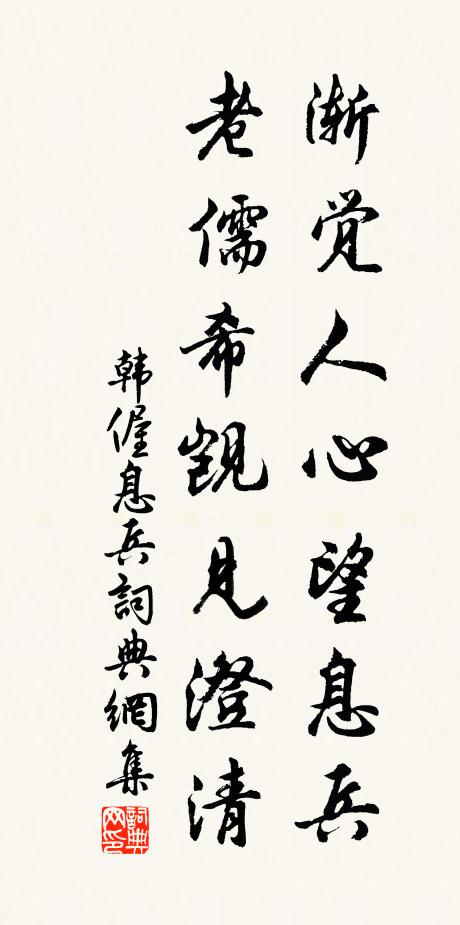 渐觉人心望息兵
老儒希觊见澄清
韩偓息兵詞典網集
詞典网印